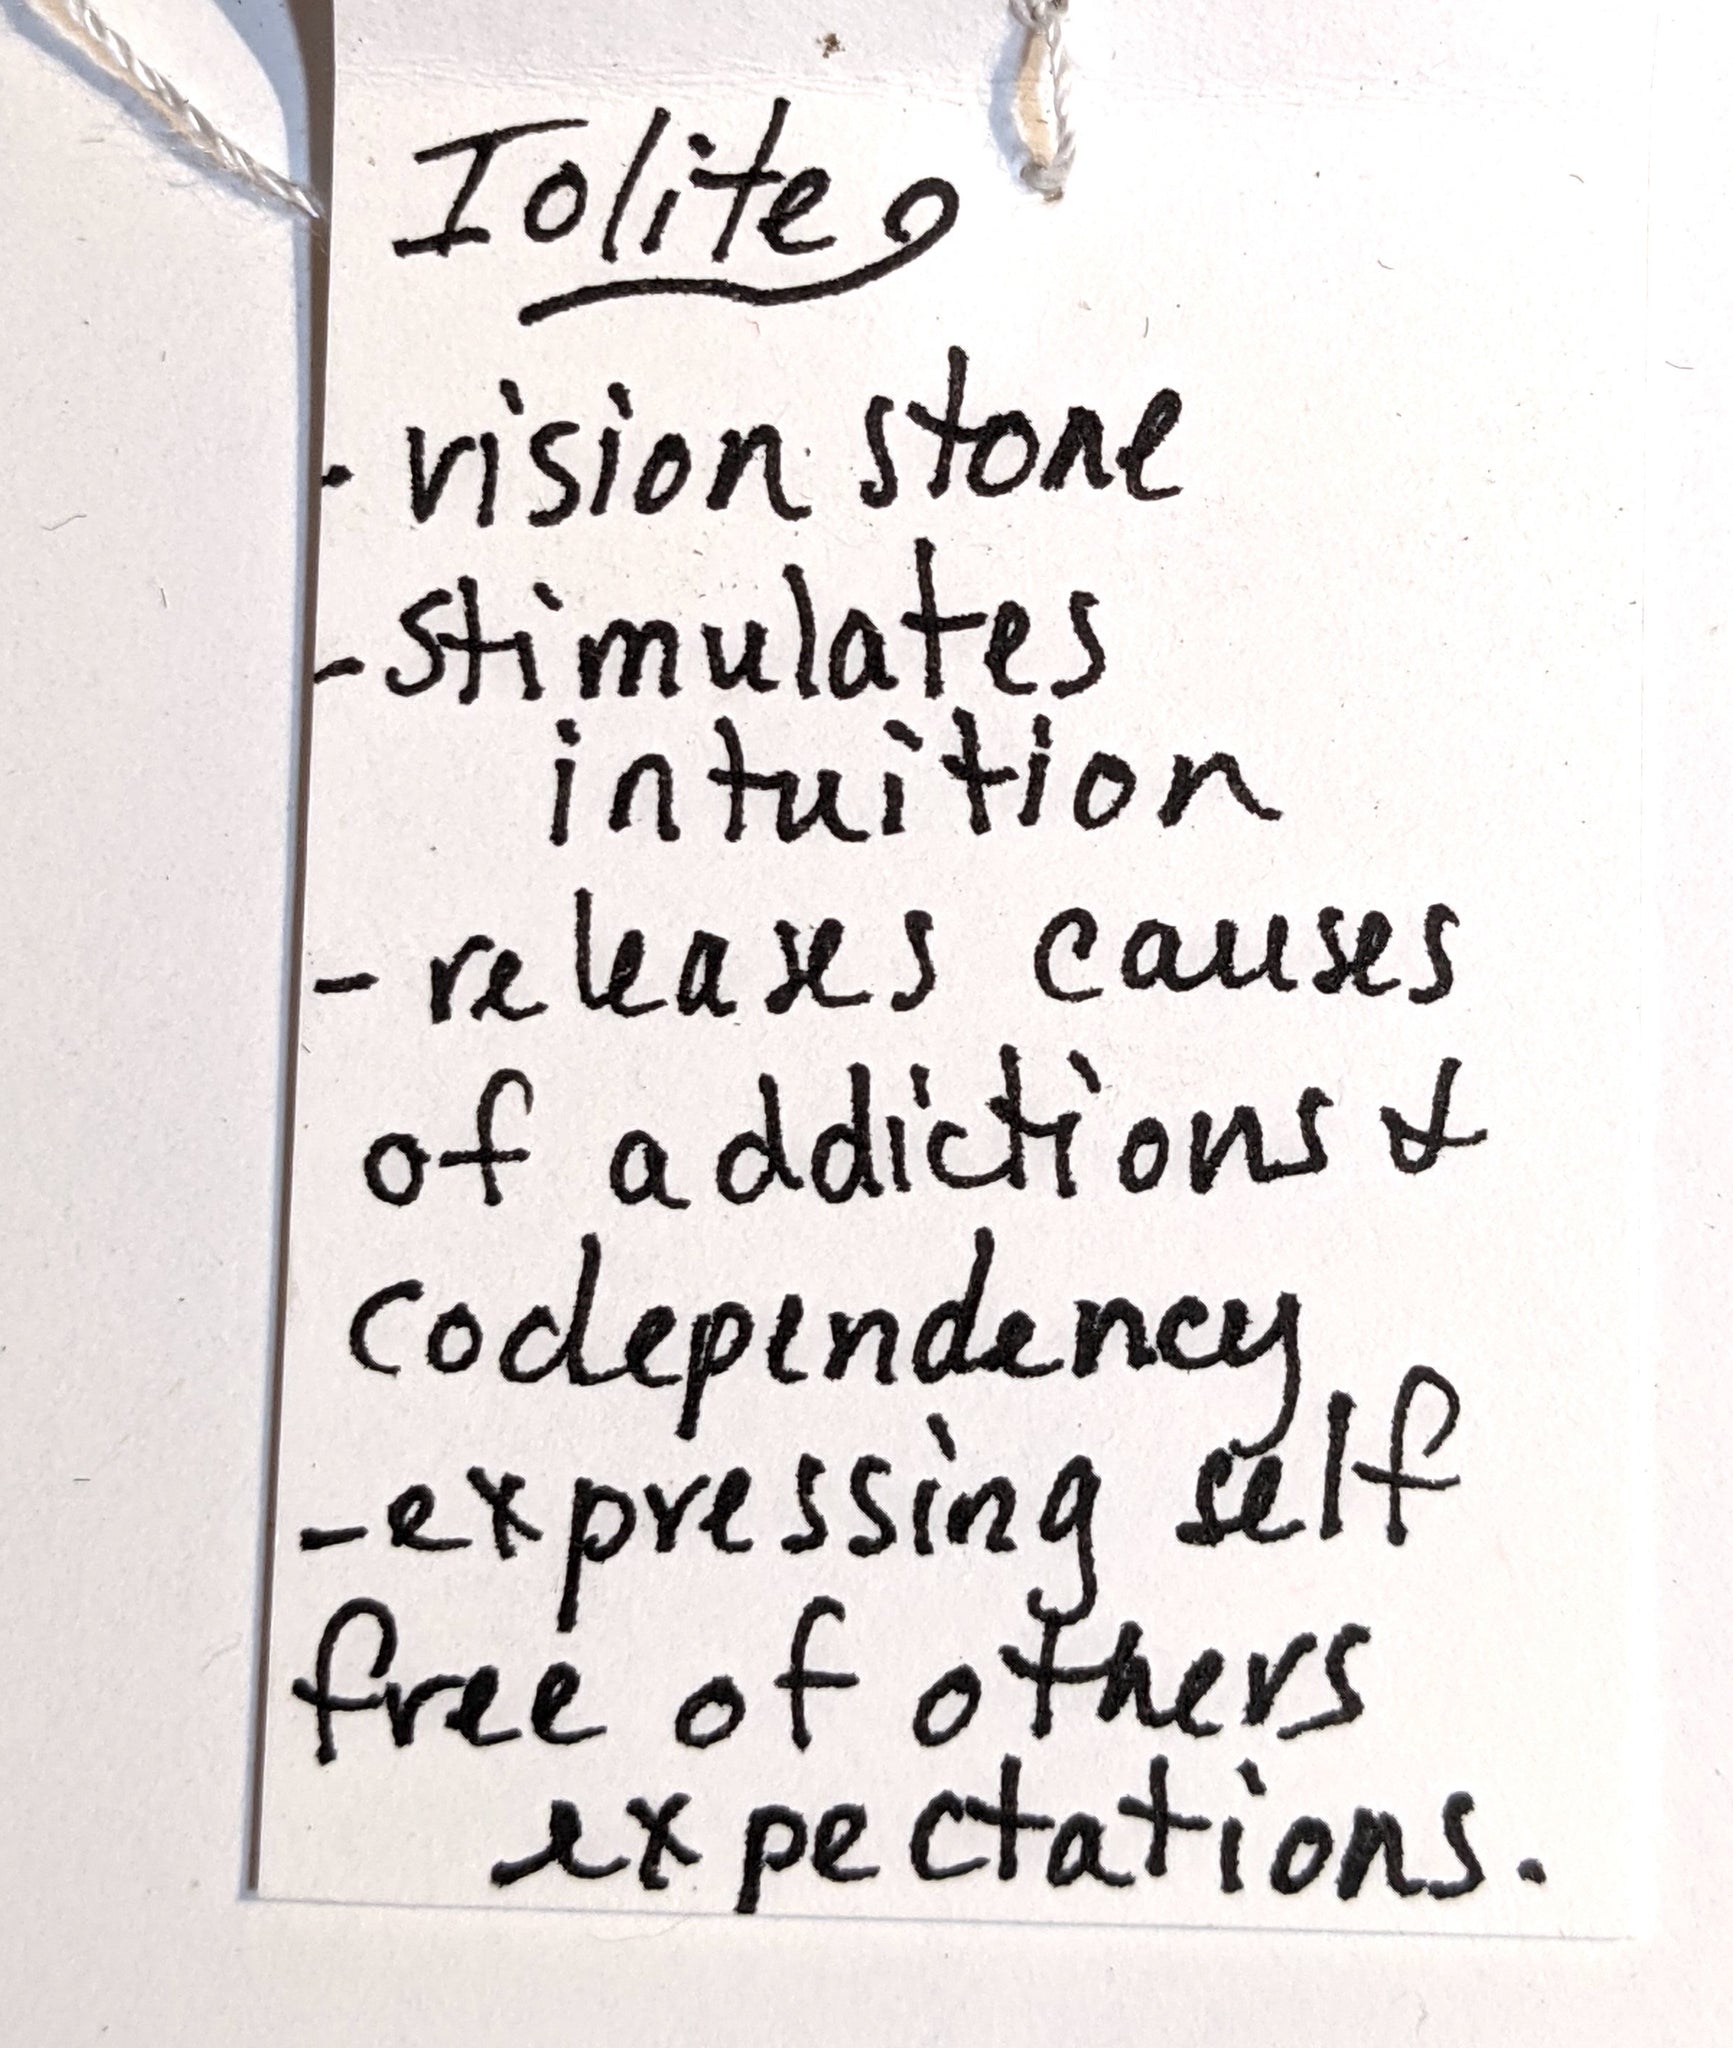 Iolite
- vision stone
- stimulates
intuition
- releases causes
of addictions &
codependency
- expressing self
free of others
expectations.